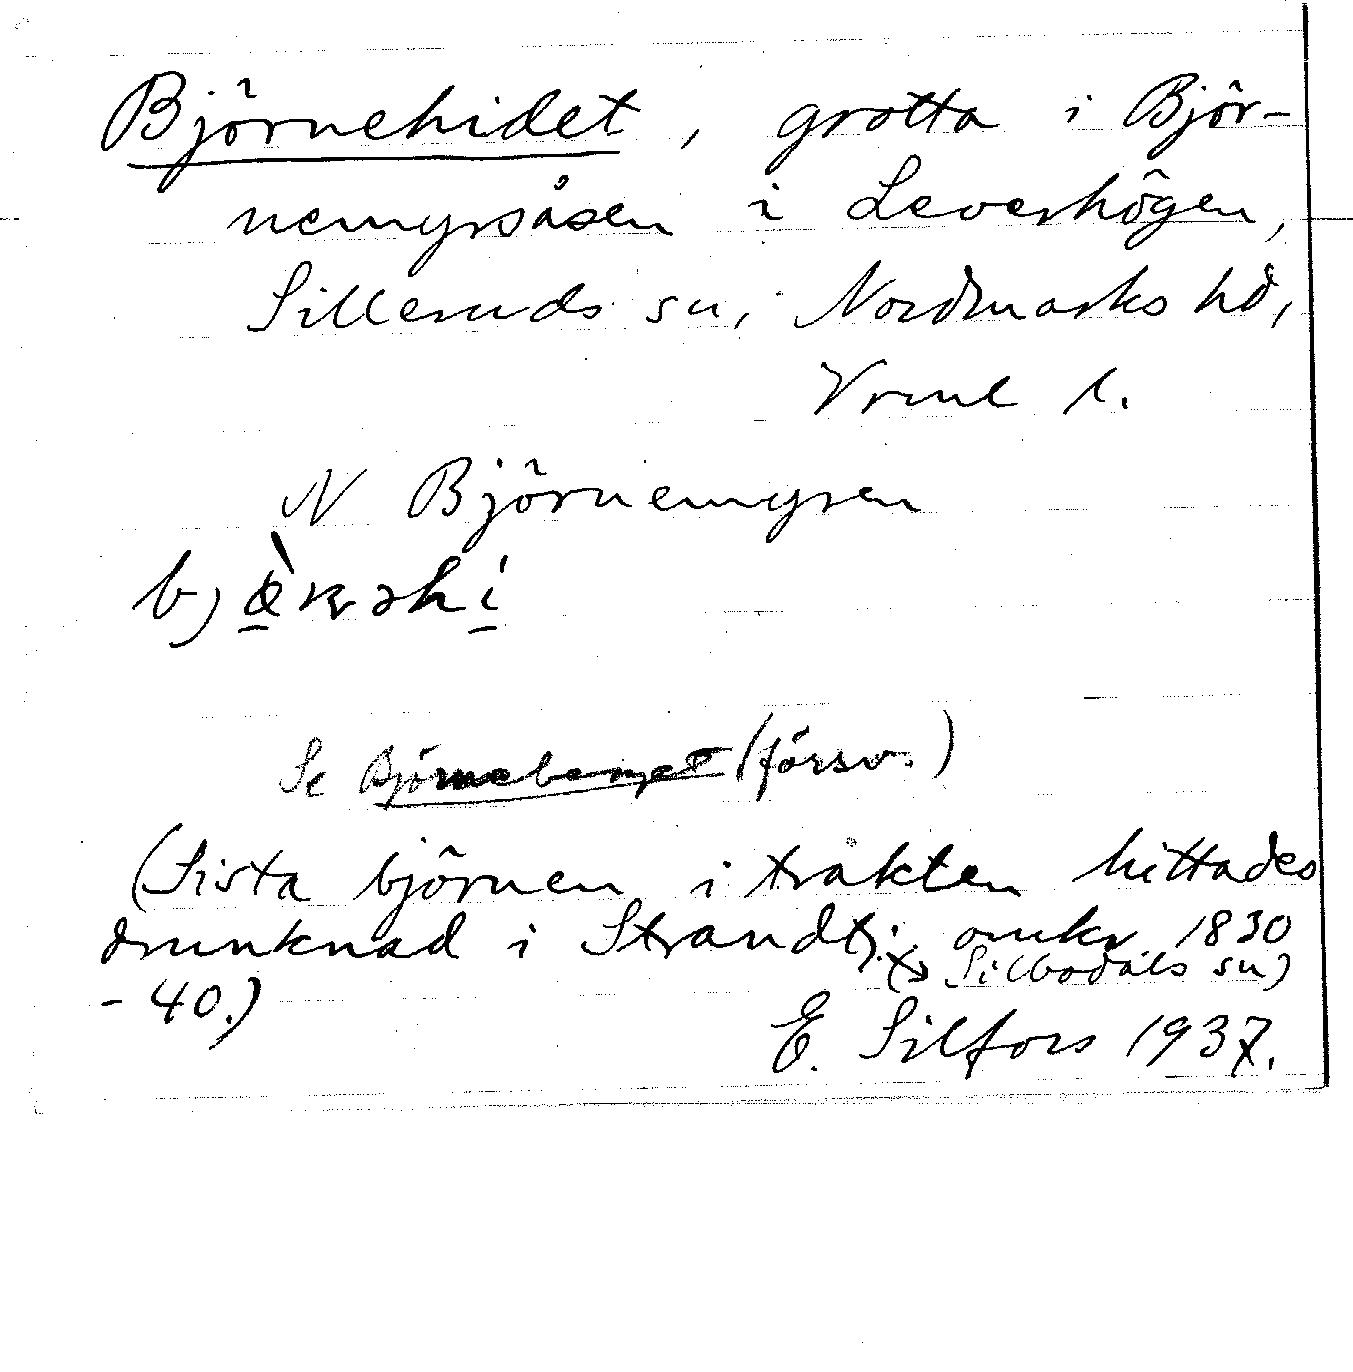 Björnehidet, grotta i Björ-
nemyrsåsen i Leverhögen,
Silleruds sn, Nordmarks hd,
Vrml l.
N Björnemyren
Se Björneberget (försv.)
(Sista björnen i trakten hittades
drunknad i Strandtj. omkr 1830
(x Silbodals sn)
- 40.)
E. Silfors 1937.